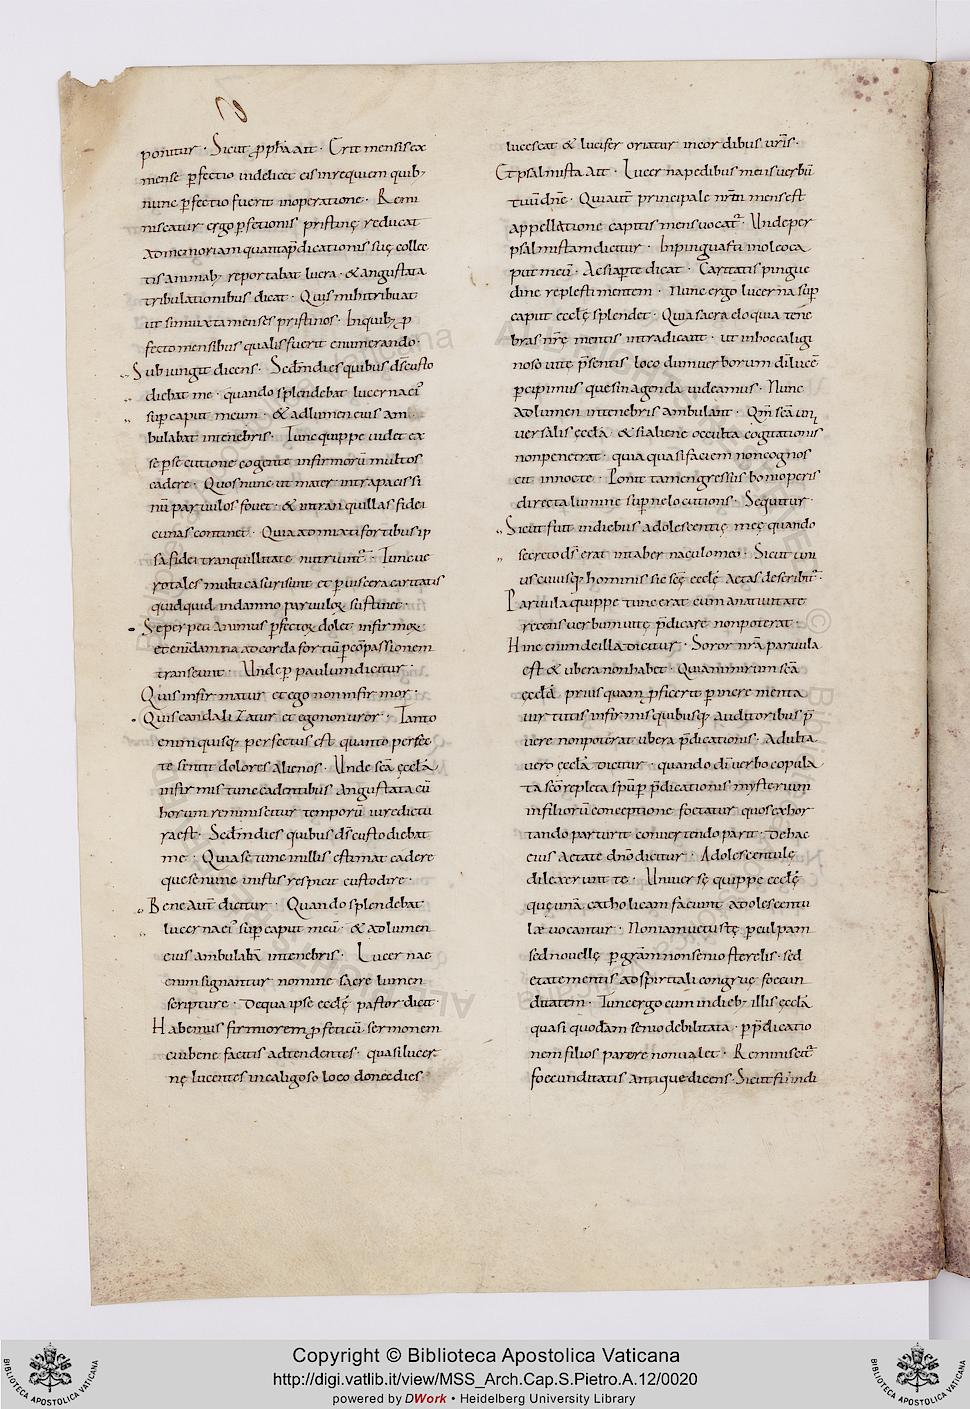 ponitur · Sicut ꝓph̄a ait · Erit mensis ex
mense ꝑfectio uidelicet eis inrequiem quib;
nunc ꝑfectio fuerit inoperatione · Remi
niscatur ergo ꝑfectionis pristinę reducat
ad memoriam quanta p̄dicationis suę collec
tis animab; reportabat lucra · & angustata
tribulationibus dicat · Quis mihi tribuat
ut sim iuxta menses pristinos · Inquib; ꝑ
fecto mensibus qualis fuerit enumerando ·
Subiungit dicens · Sec̄dm dies quibus d̄s custo
diebat me · quando splendebat lucerna ei'
suꝑ caput meum · & ad lumen eius am
bulabat in tenebris · Tunc quippe uidet ex
se persecutione cogente infirmorū multos
cadere · Quos nunc ut mater intra pacis si
nū paruulos fouet · & in tranquillas fidei
cunas continet · Quia admixti fortibus ip
sa fidei tranquillitate nutriunt̄ · Tunc ue
ro tales multi casuri sunt et ꝑ uiscera caritatis
quidquid in damno paruuloꝝ sustinet ·
Seper pei animus ꝑfectoꝝ dolet infirmoꝝ
et enim damna ad corda fortiū ꝑ cōpassionem
transeunt · Unde ꝑ paulum dicitur ·
Quis infirmatur et ego non infirmor ·
Quis candalizatur et ego non uror · Tanto
enim quisq; perfectus est quanto perfec
te sentit dolores alienos · Unde sc̄a ęcclā
infirmis tunc cadentibus angustata eū
horum reminiscitur temporū iure dictu
ra est · Sec̄dm dies quibus d̄s custodiebat
me · Quia se tunc in illis estimat cadere
que se nunc in istis respicit custodire ·
Bene aut̄ dicitur · Quando splendebat
lucerna ei' suꝑ caput meū · & ad lumen
eius ambulabā in tenebris · Lucernae
enim signantur nomine sacre lumen
scripture · De qua ipse ecclę pastor dicit ·
Habemus firmiorem ꝓfeticū sermonem
cui bene facitis adtendentes · quasi lucer
nę lucentes in caligoso loco donec dies
lucescat & lucifer oriatur in cordibus ur̄is ·
Et psalmista ait · Lucerna pedibus meis uerbū
tuū dn̄e · Quia aut̄ principale nr̄m mens est
appellatione capitis mens uocat̄ · Unde per
psalmistam dicitur · Inpinguasti in oleo ca
put meū · Ac si aꝑte dicat · Caritatis pingue
dine replesti mentem · Nunc ergo lucerna suꝑ
caput ecclę splendet · Quia sacra eloquia tene
bras nr̄ę mentis intra dicant · ut in hoc caligi
noso uite p̄sentis loco dum uerborum di lucē
ꝑcipimus que sin agenda uideamus · Nunc
ad lumen in tenebris ambulant · Qm̄ sc̄a uni
uersalis ęcclā · & si aliene occulta cogitationis
non penetrat · quia quasi faciem non cognos
cit in nocte · Ponit tamen gressus boni operis
directa lumine suꝑne locutions · Sequitur ·
Sicut fui in diebus adolescentię meę quando
secreto d̄s erat in tabernaculo meo · Sicut uni
us cuiusq; hominis sic sc̄ę ecclę aetas describit̄ ·
Paruula quippe tunc erat cum a natiuitate
recens uerbum uitę p̄dicare non poterat ·
Hinc enim de illa dicitur · Soror nr̄a paruula
est & ubera non habet · Quia nimirum sc̄a
ęcclā prius quam ꝓficerit ꝑ incrementa
uirtutis infirmis quibusq; auditoribus p̄
uere non poterat ubera p̄dicationis · Adulta
uero ęcclā dicitur · quando dī uerbo copula
ta sc̄o repleta spū ꝑ p̄dicationis mysterium
in filiorū conceptione foetatur quos exhor
tando parturit conuertendo parit · De hac
eius aetate dn̄o dicitur · Adolescentulę
dilexerunt te · Uniuersę quippe ecclę
quę unā catholicam faciunt adolescentu
lae uocantur · Non iam uetustę ꝑ culpam
sed nouellę ꝑ gr̄am non senio sterelis · sed
etate mentis ad spiritali congruę foecun
ditatem · Tunc ergo cum in dieb; illis ęcclā
quasi quodam senio debilitata · ꝑ p̄dicatio
nem filios parere non ualet · Reminiscit̄
foecunditatis antique dicens · Sicut fui in di
Copyright © Biblioteca Apostolica Vaticana
http://digi.vatlib.it/view/MSS_Arch.Cap.S.Pietro.A.12/0020
powered by DWork • Heidelberg University Library